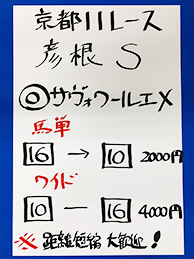 京都11レース
彦根S
◎サヴォワールエメ
馬単
16→10 2000円
ワイド
10－16 4000円
※距離短縮大歓迎！